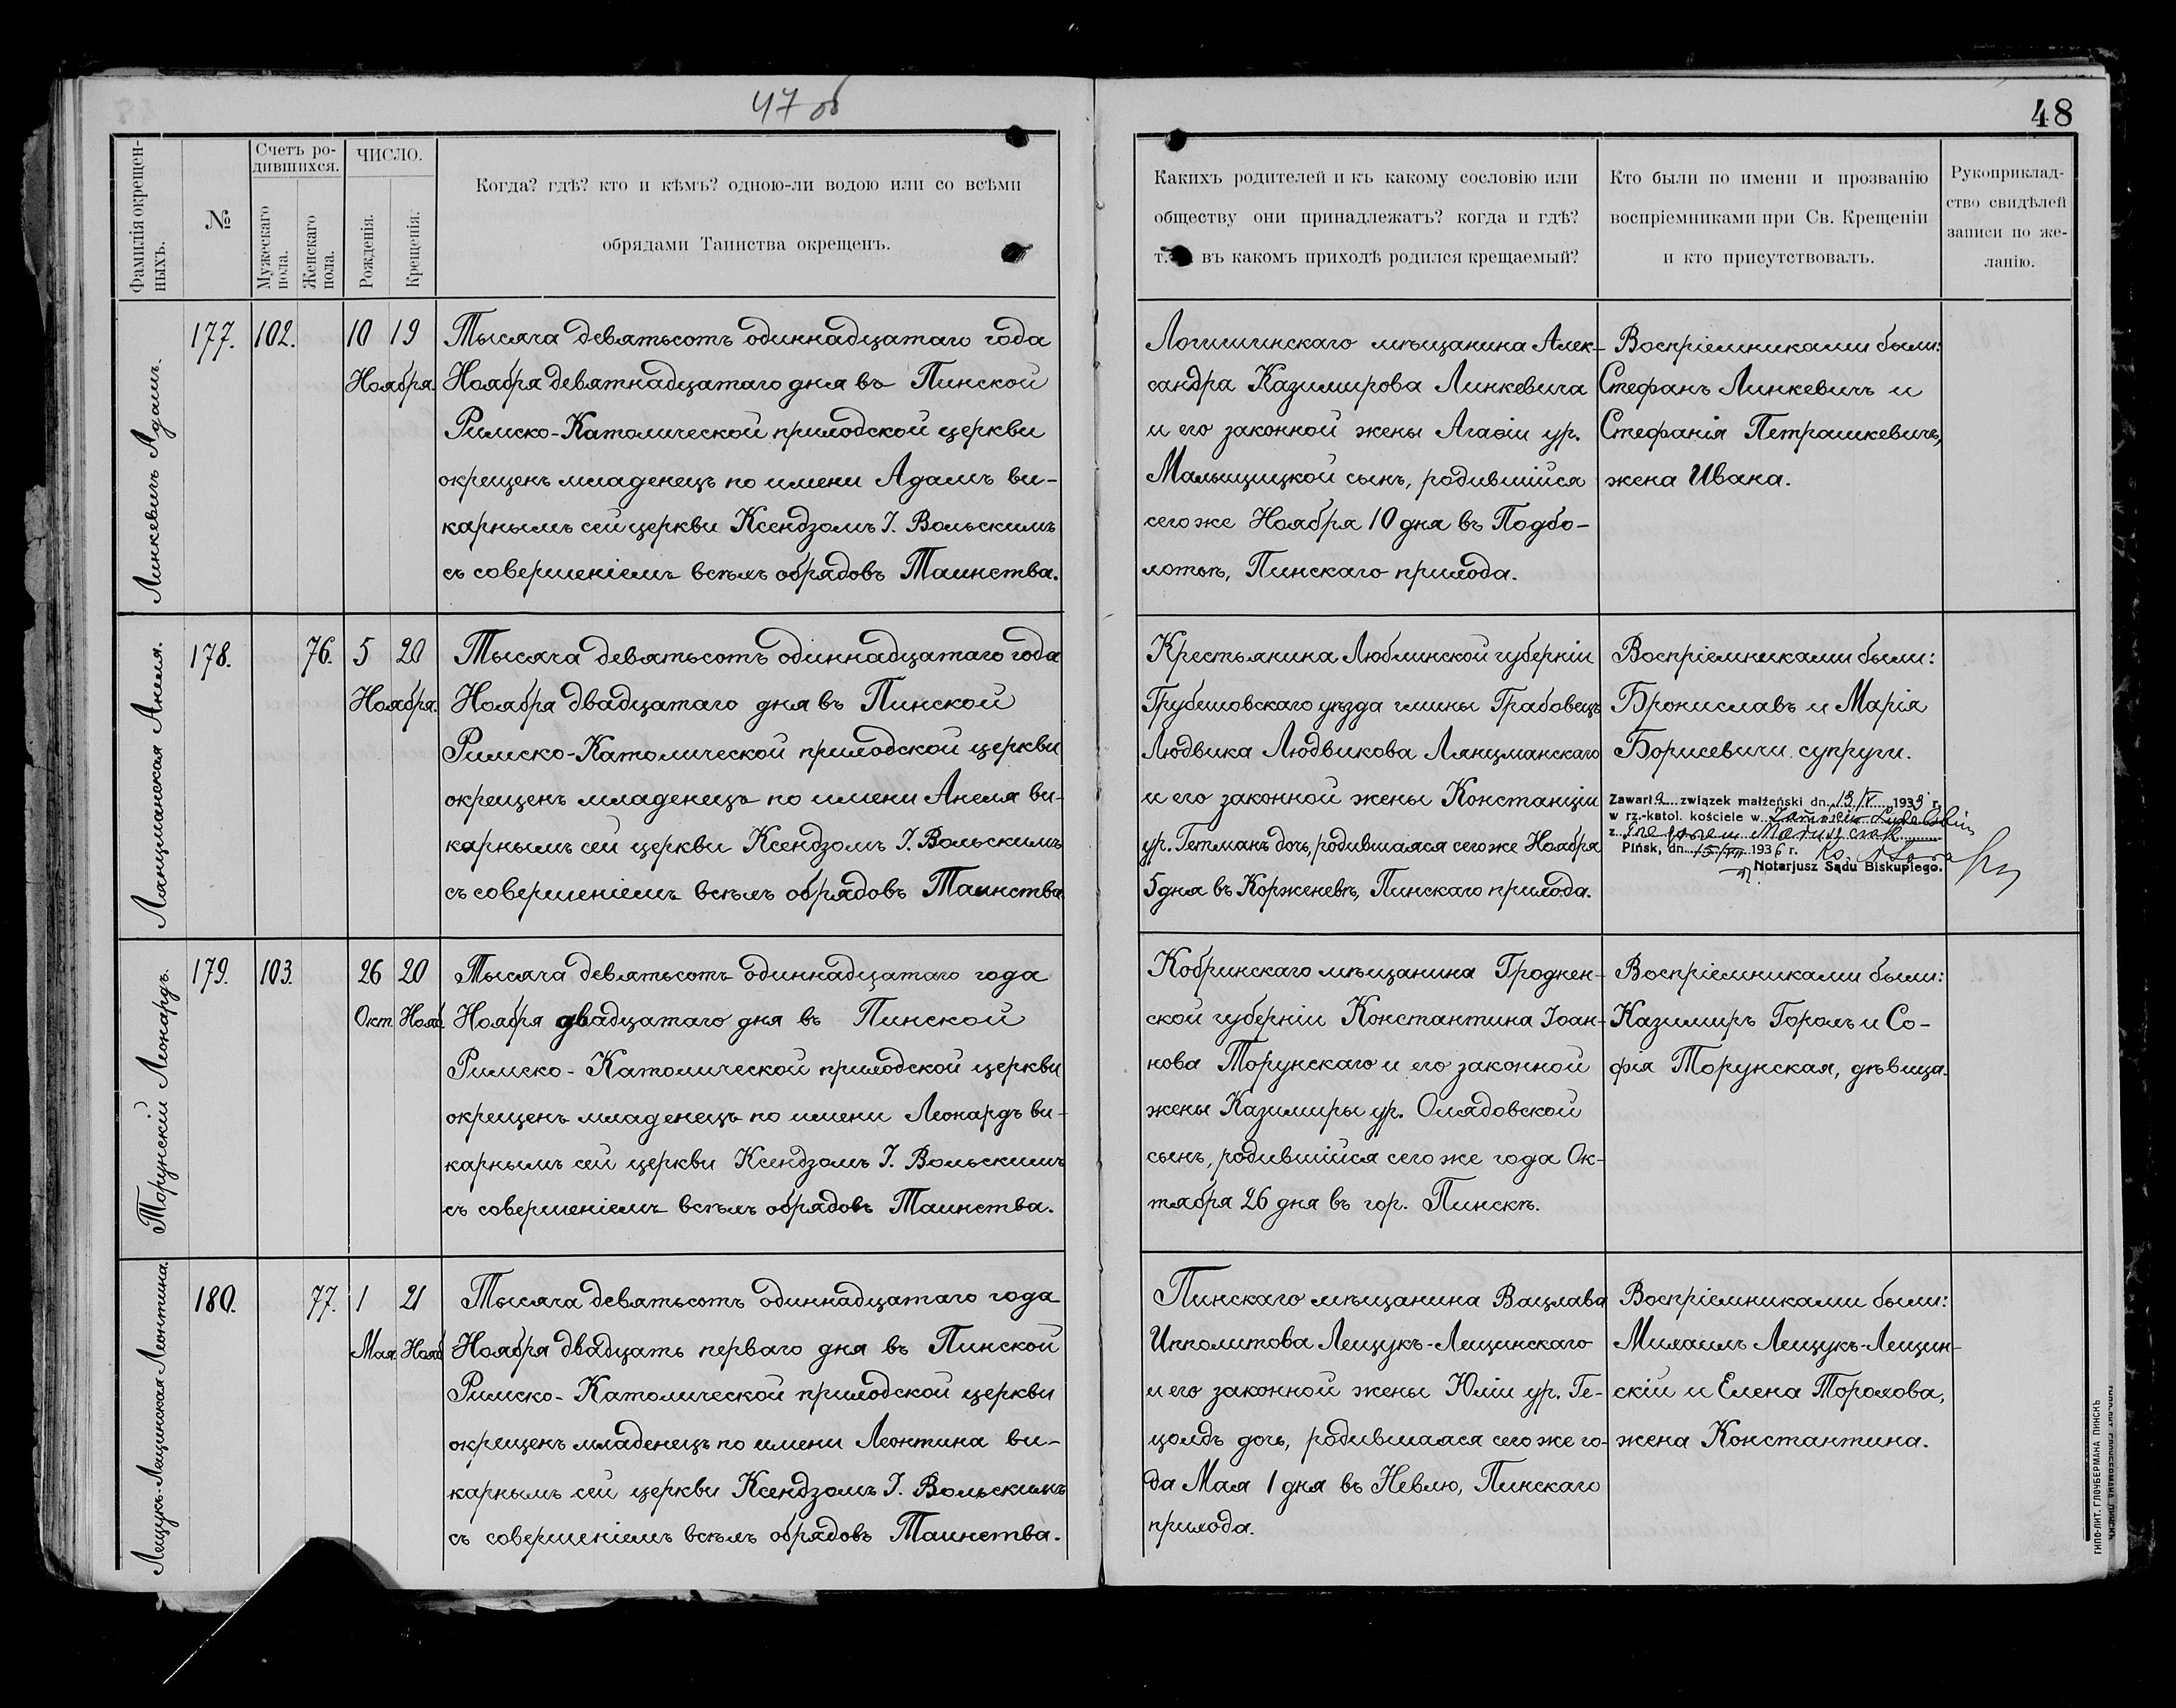 47 об
48
Фамилія окрещен-
ныхъ.
№
Счетъ ро-
дившихся.
Мужескаго
пола.
Женскаго
пола.
ЧИСЛО.
Рожденія.
Крещенія.
Когда? гдѣ? кто и кѣмъ? одною-ли водою или со всѣми
обрядами Таинства окрещенъ.
Какихъ родителей и къ какому сословію или
обществу они принадлежатъ? когда и гдѣ?
т. въ какомъ приходѣ родился крещаемый?
Кто были по имени и прозванію
воспріемниками при Св. Крещеніи
и кто присутствовалъ.
Рукоприклад-
ство свидѣлей
записи по же-
ланію.
Линкевичъ Адамъ.
177. 102. 10 19
Ноября.
Тысяча девятьсотъ одиннадцатаго года
Ноября девятнадцатаго дня въ Пинской
Римско-Католической приходской церкви
окрещенъ младенецъ по имени Адамъ ви-
карнымъ сей церкви Ксендзомъ І. Вольскимъ
съ совершеніемъ всѣхъ обрядовъ Таинства.
Логишинскаго мѣщанина Алек-
сандра Казимирова Линкевича
и его законной жены Агафіи ур.
Малыщицкой сынъ, родившійся
сего же Ноября 10 дня въ Подбо-
лотьѣ, Пинскаго прихода.
Воспріемниками были:
Стефанъ Линкевичъ и
Стефанія Петрашкевичъ,
жена Ивана.
Лянцманская Анеля.
178. 76. 5 20
Ноября.
Тысяча девятьсотъ одиннадцатаго года
Ноября двадцатаго дня въ Пинской
Римско-Католической приходской церкви
окрещенъ младенецъ по имени Анеля ви-
карнымъ сей церкви Ксендзомъ І. Вольскимъ
съ совершеніемъ всѣхъ обрядовъ Таинства
Крестьянина Люблинской губерніи
Грубешовскаго уѣзда гмины Грабовецъ
Людвика Людвикова Лянцманскаго
и его законной жены Констанціи
ур. Гетманъ дочь, родившаяся сего же Ноября
5 дня въ Корженевѣ, Пинскаго прихода.
Воспріемниками были:
Брониславъ и Марія
Борисевичи супруги.
Zawarła związek małżeński dn. 193 r.
w rz.-katol. kościele w
z
Pińsk, dn. 1936 r.
Notarjusz Sądu Biskupiego.
Торунскій Леонардъ.
179. 103. 26 20
Окт. Нояб.
Тысяча девятьсотъ одиннадцатаго года
Ноября двадцатаго дня въ Пинской
Римско-Католической приходской церкви
окрещенъ младенецъ по имени Леонардъ ви-
карнымъ сей церкви Ксендзомъ І. Вольскимъ
съ совершеніемъ всѣхъ обрядовъ Таинства.
Кобринскаго мѣщанина Гроднен-
ской губерніи Константина Іоан-
нова Торунскаго и его законной
жены Казимиры ур. Олядовской
сынъ, родившійся сего же года Ок-
тября 26 дня въ гор. Пинскѣ.
Воспріемниками были:
Казимиръ Горолъ и Со-
фія Торунская, дѣвица.
Лещукъ-Лещинская Леонтина.
180. 77. 1 21
Мая Нояб
Тысяча девятьсотъ одиннадцатаго года
Ноября двадцать перваго дня въ Пинской
Римско-Католической приходской церкви
окрещенъ младенецъ по имени Леонтина ви-
карнымъ сей церкви Ксендзомъ І. Вольскимъ
съ совершеніемъ всѣхъ обрядовъ Таинства.
Пинскаго мѣщанина Вацлава
Ипполитова Лещукъ-Лещинскаго
и его законной жены Юліи ур. Ге-
цолдъ дочь, родившаяся сего же го-
да Мая 1 дня въ Невлю, Пинскаго
прихода.
Воспріемниками были:
Михаилъ Лещукъ-Лещин-
скій и Елена Торохова,
жена Константина.
ТИПО-ЛИТ. ГЛОУБЕРМАНА ПИНСКЪ